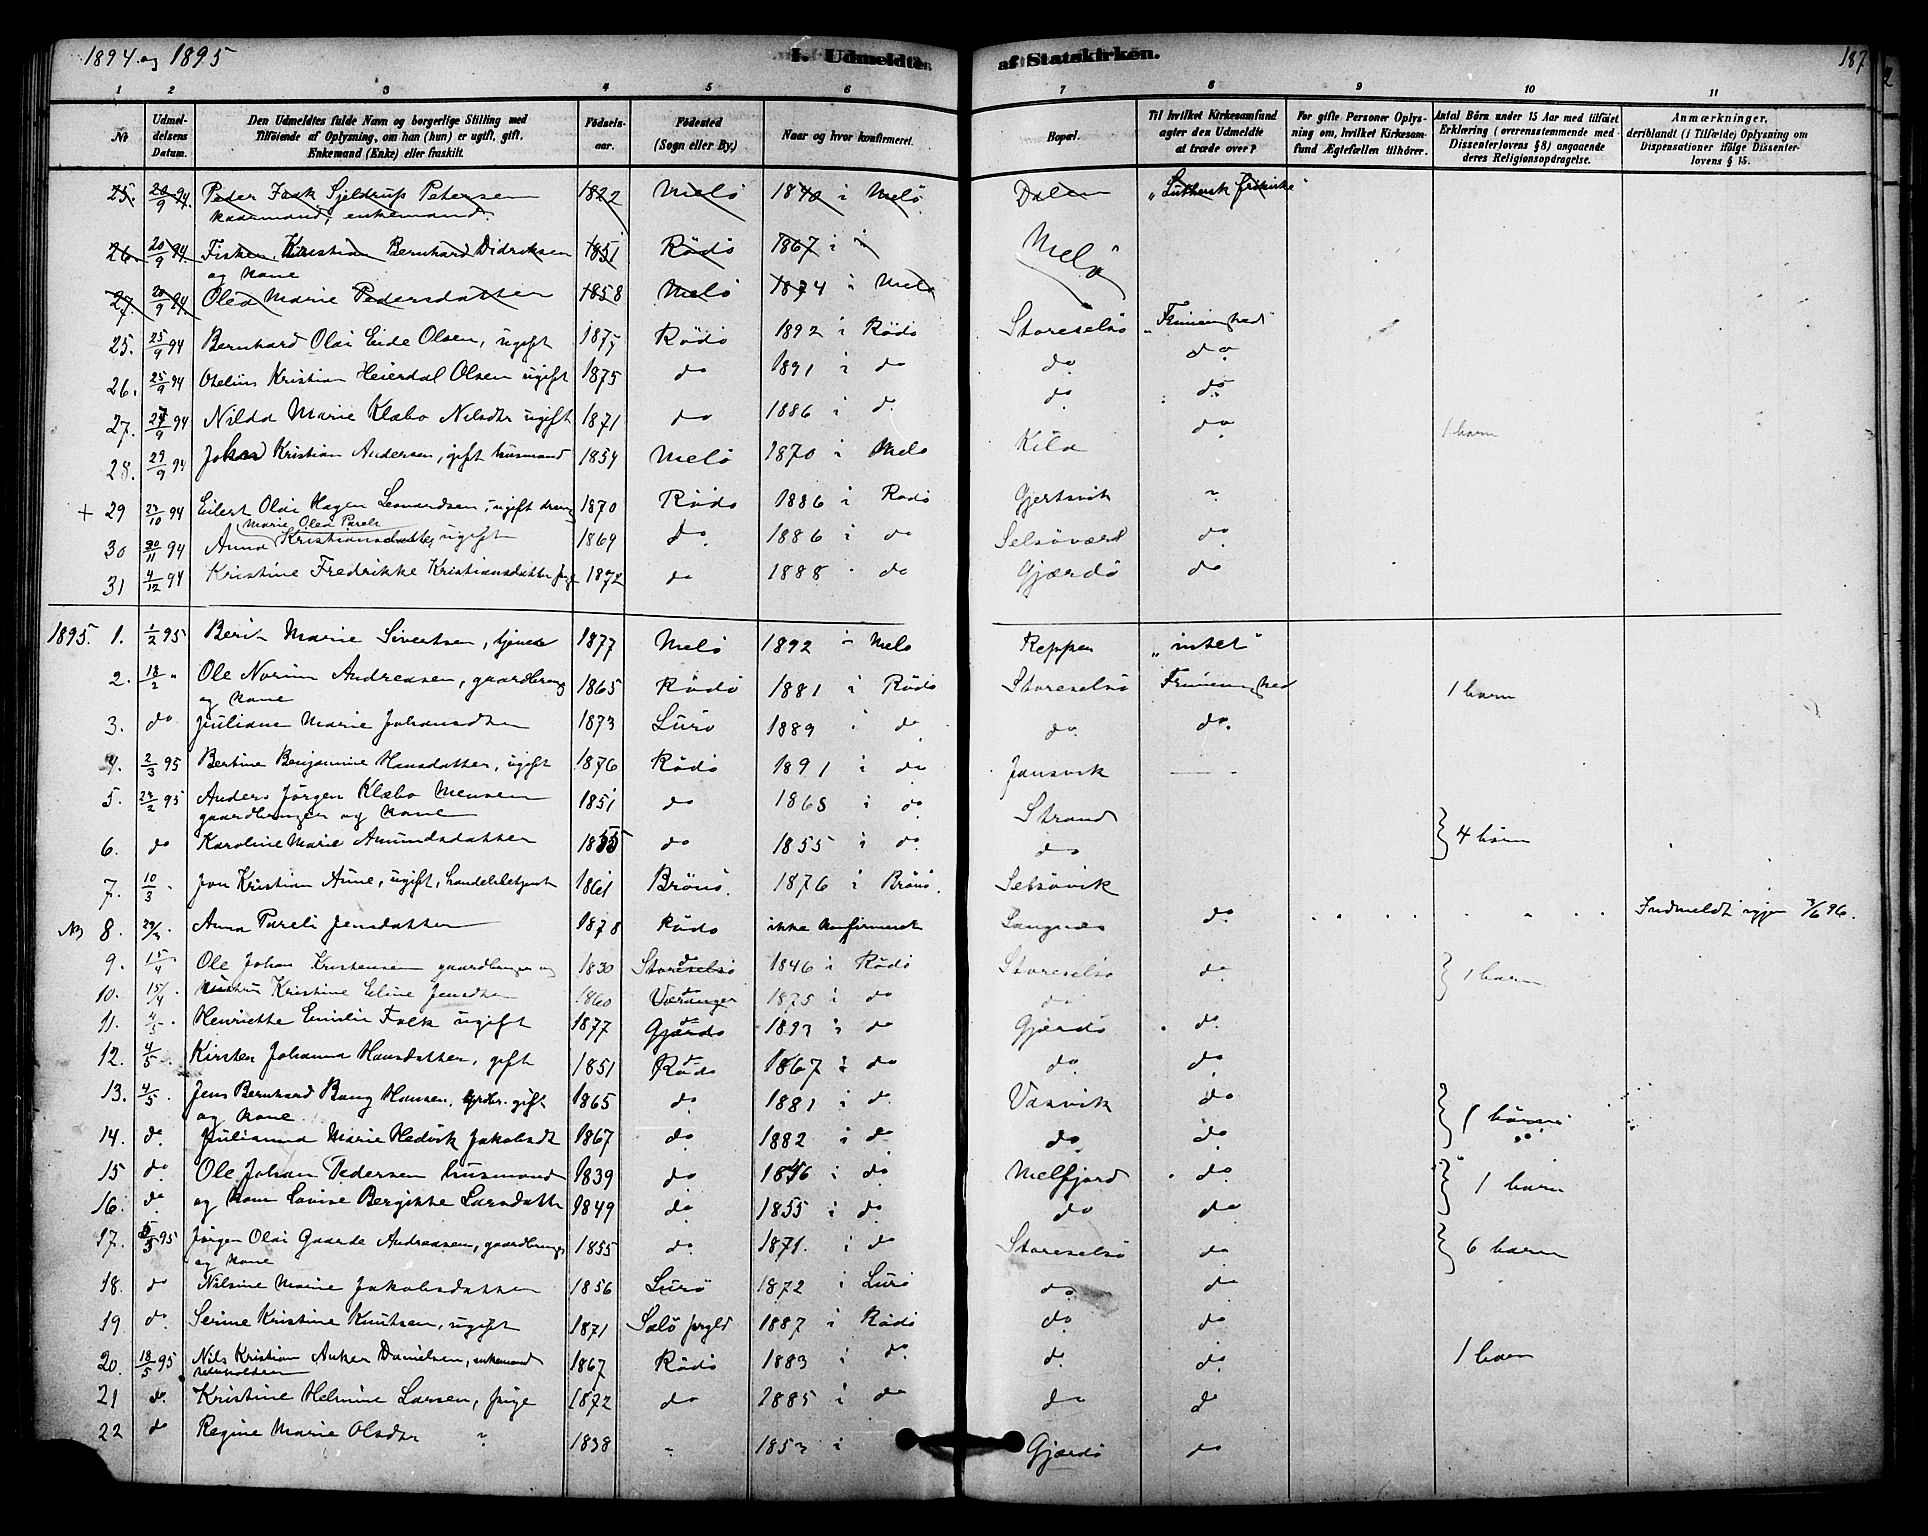 1894 og 1895
I. Udmeldte af Statskirken.
187
1 2 3 4 5 6 7 8 9 10 11
№ | Udmeldelsens Datum. | Den Udmeldtes fulde Navn og borgerlige Stilling med Tilføiende af Oplysning, om han (hun) er ugift, gift, Enkemand (Enke) eller fraskilt. | Fødselsaar. | Fødested (Sogn eller By.) | Naar og hvor konfirmeret. | Bopæl. | Til hvilket Kirkesamfund agter den Udmeldte at træde over? | For gifte Personer Oplysning om, hvilket Kirkesamfund Ægtefællen tilhører. | Antal Børn under 15 Aar med tilføiet Erklæring (overensstemmende med Dissenterlovens § 8) angaaende deres Religionsopdragelse. | Anmærkninger, deriblandt (i Tilfælde) Oplysning om Dispensationer ifølge Dissenterlovens § 15.
25. 20/9 94. Peder Falk Sjeldrup Petersen 1822 Melö 1840 i Melö. Dalen "Luthersk frikirke"
enkemand.
26. 20/9 94. Fisker Kristian Bernhard Didriksen 1851 Rödö 1867 i " Melö
og kone
27. 20/9 94. Olea Marie Pedersdatter 1858 Melö 1874 i Melö
25. 25/9 94 Bernhard Olai Eide Olsen, ugift 1877 Rödö 1892 i Rödö Storeselsö
26. 25/9 94 Otelius Kristian Heierdal Olsen ugift 1875 do 1891 i do do do
27. 27/9 94 Nilda Marie Klæbo Nilsdtr ugift 1871 do 1886 i d. do. do.
28. 29/9 94 Johan Kristian Andersen, gift husmand 1854 Melö 1870 i Melö Kila do 1 barn
+ 29 29/10 94 Eilert Olai Hagen Leonardsen, ugift dreng 1870 Rödö 1886 i Rödö Gjertsvik "
Marie Olea Pareli
30 30/11 94 Anna Kristiansdatter, ugift 1869 do. 1886 i do Selsövær do
31 4/12 94 Kristine Fredrikke Kristiansdatter, pige 1872 do 1888 " do Gjærdö do
1895. 1. 1/2 95 Berit Marie Sivertsen, tjener 1877 Melö 1892 i Melö Reppen "intet"
2. 18/2 " Ole Norum Andreasen, gaardbruger 1865 Rödö 1881 i Rödö Storeselsö 1 barn
og kone
3. do Juliane Marie Johansdtr 1873 Lurö 1889 i do do. do.
4. 2/3 95 Bertine Benjamine Hansdatter, ugift 1876 Rödö 1891 i do Jansvik
5. 24/2 95 Anders Jörgen Klæbo Mensen 1851 do 1868 i do Strand
gaardbruger og kone
6. do Karoline Marie Amundsdatter 1855 do 1855 i do. do } 4 börn
7. 10/3 . Jon Kristian Aune, ugift, handelsbetjent 1861 Brönö. 1876 i Brönö. Selsövik
8. 29/3 . Anna Pareli Jensdatter 1878 Rödö ikke konfirmeret Langnes do Indmeldt igjen 7/6 96.
9. 15/4 Ole Johan Kristensen gaardbruger og 1830 Storeselsö do 1846 i Rödö Storeselsö do } 1 barn
10. 15/4 . hustru Kristine Eline Jensdtr 1860 Væranger do 1875 i do do
11. 4/5 . Henriette Emilie Falk ugift 1877 Gjærdö do 1893 i do Gjærdö do
12. 4/5 . Kirsten Johanna Hansdatter, gift 1851 Rödö do 1867 i do do do
13. 4/5 . Jens Bernhard Bang Hansen, grdbr. gift 1865 do 1881 i do. Vasvik do
og kone
14. do. Julianna Marie Hedvik Jakobsdt 1867 do. 1882 i do do do
15 do Ole Johan Pedersen husmand 1839 do 1856 i do Melfjord do } 1 barn
16. do og kone Lovise Bergitte Larsdatter 1849 do 1855 i do do do
17. 5/3 95 Jörgen Olai Gaarde Andreasen, gaardbruger 1855 do. 1871. i do Storeselsö do } 6 barn
og kone
18. do Nilsine Marie Jakobsdatter 1856 Lurö 1872 i Lurö do do
19 do. Serine Kristine Knutsen, ugift 1871 1887 i Rödö do do
20. 18/5 95 Nils Kristian Anker Danielsen, enkemand 1867 Rödö 1883 i do. do. do. 1 barn
21 do. Kristine Helmine Larsen, pige 1872 do 1885 i do do do
22 do Regine Marie Olsdtr " 1838 " 1853 i Gjærdö do